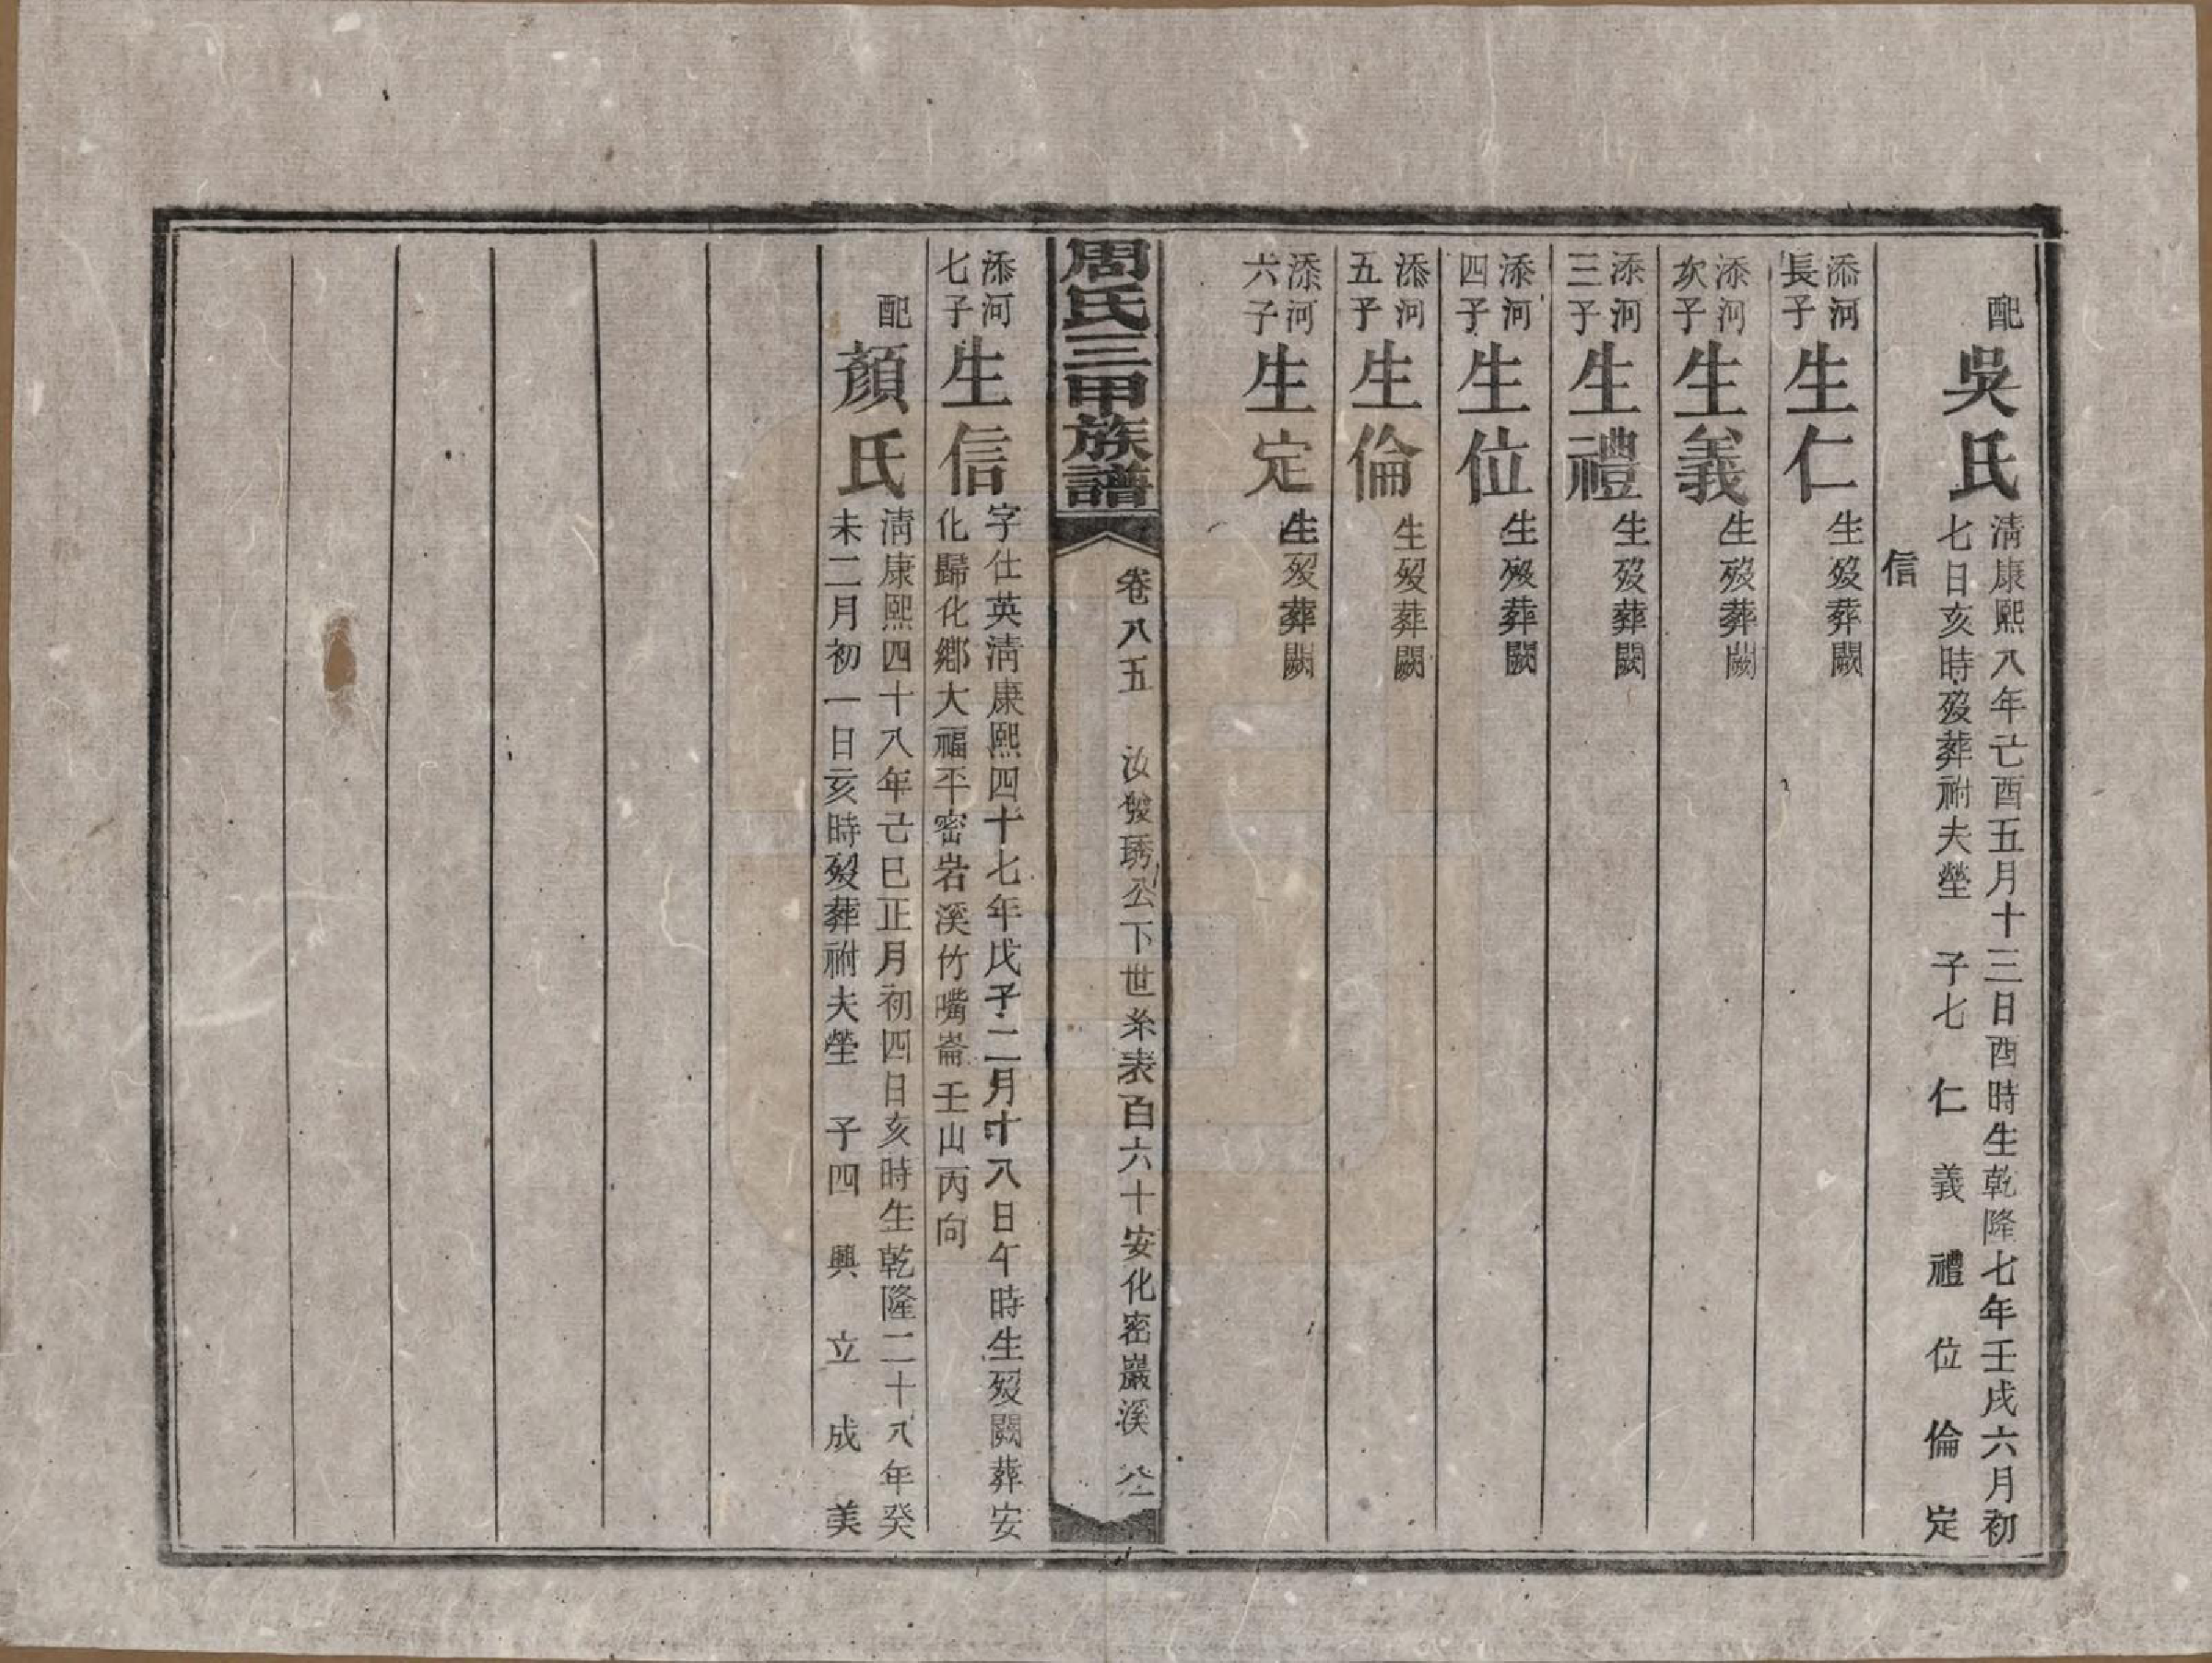 配吳氏清康熙八年己酉五月十三日酉時生乾隆七年壬戌六月初
七日亥時歿葬祔夫塋 子七 仁 義 禮 位 倫 定
信
添河長子生仁生歿葬闕
添河次子生義生歿葬闕
添河三子生禮生歿葬闕
添河四子生位生歿葬闕
添河五子生倫生歿葬闕
添河六子生定生歿葬闕
周氏三甲族譜 卷八五 汝發琇公下世系表百六十安化密巖溪 八一
添河七子生信字仕英清康熙四十七年戊子二月十八日午時生歿闕葬安
化歸化鄉大福平密岩溪竹嘴崙壬山丙向
配顏氏清康熙四十八年己巳正月初四日亥時生乾隆二十八年癸
未二月初一日亥時歿葬祔夫塋 子四 興 立 成 美